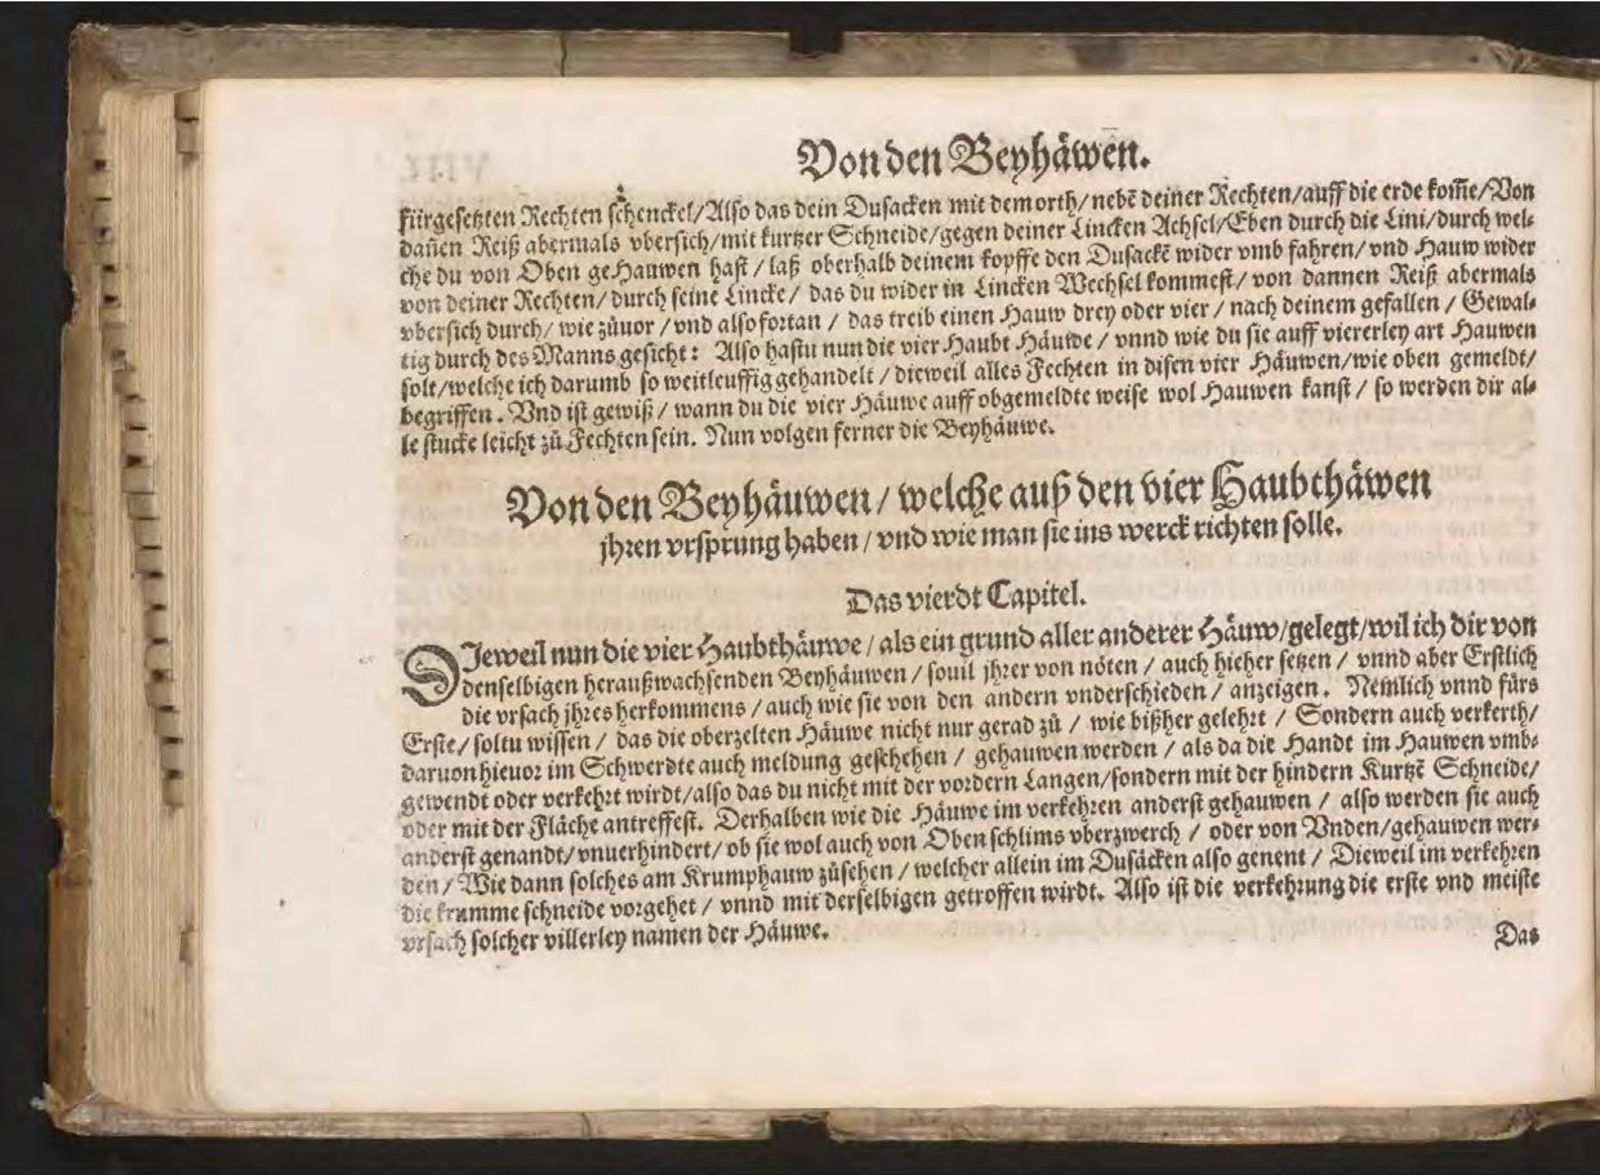 Von den Beyhäwen.
fürgesetzten Rechten schenckel/Also das dein Dusacken mit dem orth/nebē deiner Rechten/auff die erde kom̄e/Von
dan̄en Reiß abermals vbersich/mit kurtzer Schneide/gegen deiner Lincken Achsel/Eben durch die Lini/durch wel-
che du von Oben geHauwen hast/laß oberhalb deinem kopffe den Dusackē wider vmb fahren/vnd Hauw wider
von deiner Rechten/durch seine Lincke/das du wider in Lincken Wechsel kommest/von dannen Reiß abermals
vbersich durch/wie zůuor/vnd also fortan/das treib einen Hauw drey oder vier/nach deinem gefallen/Gewal-
tig durch des Manns gesicht: Also hastu nun die vier Haubt Häuwe/vnnd wie du sie auff viererley art Hauwen
solt/welche ich darumb so weitleuffig gehandelt/dieweil alles Fechten in disen vier Häuwen/wie oben gemeldt/
begriffen. Vnd ist gewiß/wann du die vier Häuwe auff obgemeldte weise wol Hauwen kanst/so werden dir al-
le stucke leicht zů Fechten sein. Nun volgen ferner die Beyhäuwe.
Von den Beyhäuwen/welche auß den vier Haubthäwen
jhren vrsprung haben/vnd wie man sie ins werck richten solle.
Das vierdt Capitel.
DJeweil nun die vier Haubthäuwe/als ein grund aller anderer Häuw/gelegt/wil ich dir von
denselbigen heraußwachsenden Beyhäuwen/souil jhrer von nöten/auch hieher setzen/vnnd aber Erstlich
die vrsach jhres herkommens/auch wie sie von den andern vnderschieden/anzeigen. Nemlich vnnd fürs
Erste/soltu wissen/das die oberzelten Häuwe nicht nur gerad zů/wie bißher gelehrt/Sondern auch verkerth/
daruon hieuor im Schwerdte auch meldung geschehen/gehauwen werden/als da die Handt im Hauwen vmb-
gewendt oder verkehrt wirdt/also das du nicht mit der vordern Langen/sondern mit der hindern Kurtzē Schneide/
oder mit der Fläche antreffest. Derhalben wie die Häuwe im verkehren anderst gehauwen/also werden sie auch
anderst genandt/vnuerhindert/ob sie wol auch von Oben schlims vberzwerch/oder von Vnden/gehauwen wer-
den/Wie dann solches am Krumphauw zůsehen/welcher allein im Dusäcken also genent/Dieweil im verkehren
die kramme schneide vorgehet/vnnd mit derselbigen getroffen wirdt. Also ist die verkehrung die erste vnd meiste
vrsach solcher villerley namen der Häuwe.
Das